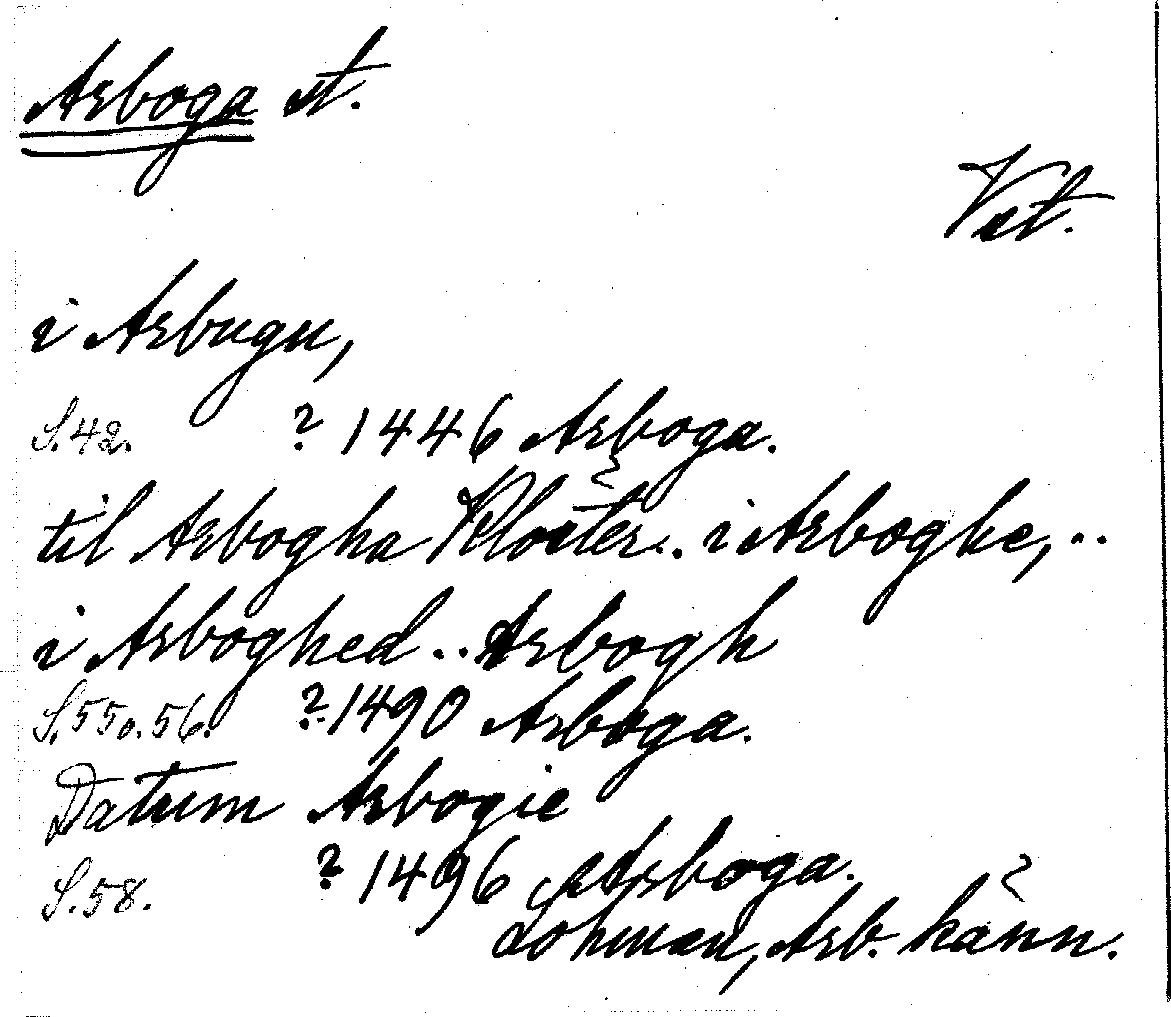 Arboga st.
Vst.
i Arbugu,
S. 42. ? 1446 Arboga.
til Arbogha Kloster .. i Arboghe, ..
i Arboghed .. Arbogh
S. 55 o. 56. ? 1490 Arboga.
Datum Arbogie
S. 58. ? 1496 Arboga.
Lohman, Arb. känn.